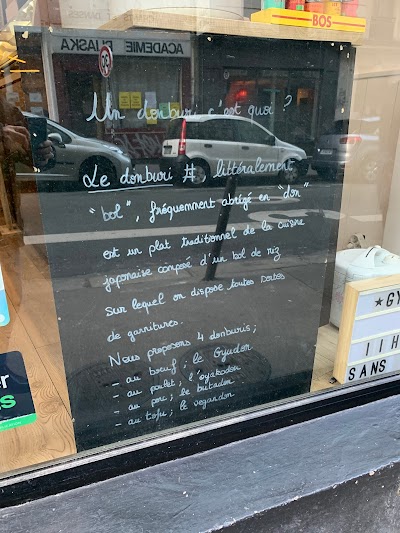 BOS
ACADEMIE PIJASKA
Un donburi c'est quoi ?
Le donburi # littéralement
"bol", fréquemment abrégé en "don"
est un plat traditionnel de la cuisine
japonaise composé d'un bol de riz
sur lequel on dispose toutes sortes
de garnitures.
Nous proposons 4 donburis;
- au boeuf; le Gyudon
- au poulet; l'oyakodon
- au porc; le butadon
- au tofu; le vegandon
★GY
IIH
SANS